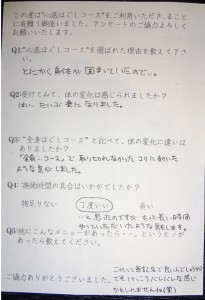 この度は"心底ほぐしコース"をご利用いただき、まこと
に有難う御座いました。アンケートのご協力よろしく
お願いいたします。
Q1"心底ほぐしコース"を選ばれた理由を教えて下さ
い。
とにかく身体が固まっていたので…。
Q2:受けてみて、体の変化は感じられましたか?
はい、だいぶ楽になりました。
Q3:"全身ほぐしコース"と比べて、体の変化に違いは
ありましたか?
"全身〜コース"で取りきれなかったコリにきいた
ような気がしました。
Q4:施術時間の具合はいかがでしたか?
物足りない 丁度いい 長い
と思ったのですが、もっと長い時間
やっていただいたような気もします。
Q5:他にこんなメニューがあったら・・、というモノが
あったら教えてください。
ご協力ありがとうございました。
これって無記名で良いんでしょうか
でもけっこうバレバレな感じ
かもしれませんね(笑)